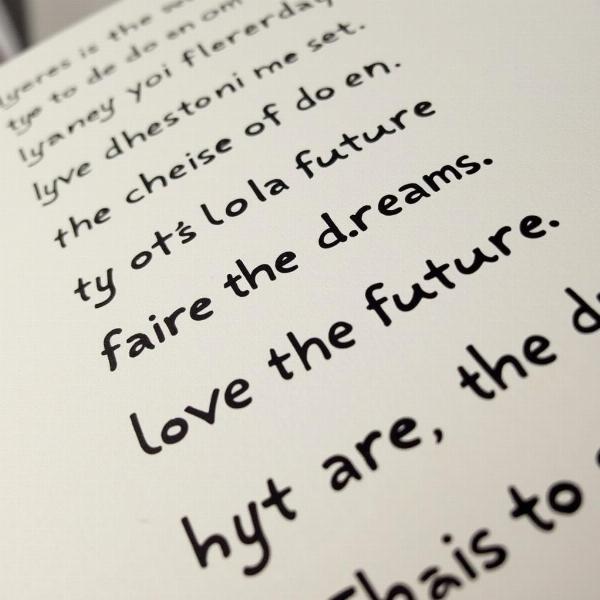 lyeres is the
tye to de do en om
lyaney yoi flererday
lyve dhestoni me set.
the cheise of do en.
ty ot's lola future
faire the d.reams.
love the future.
hyt are, the
Thais to